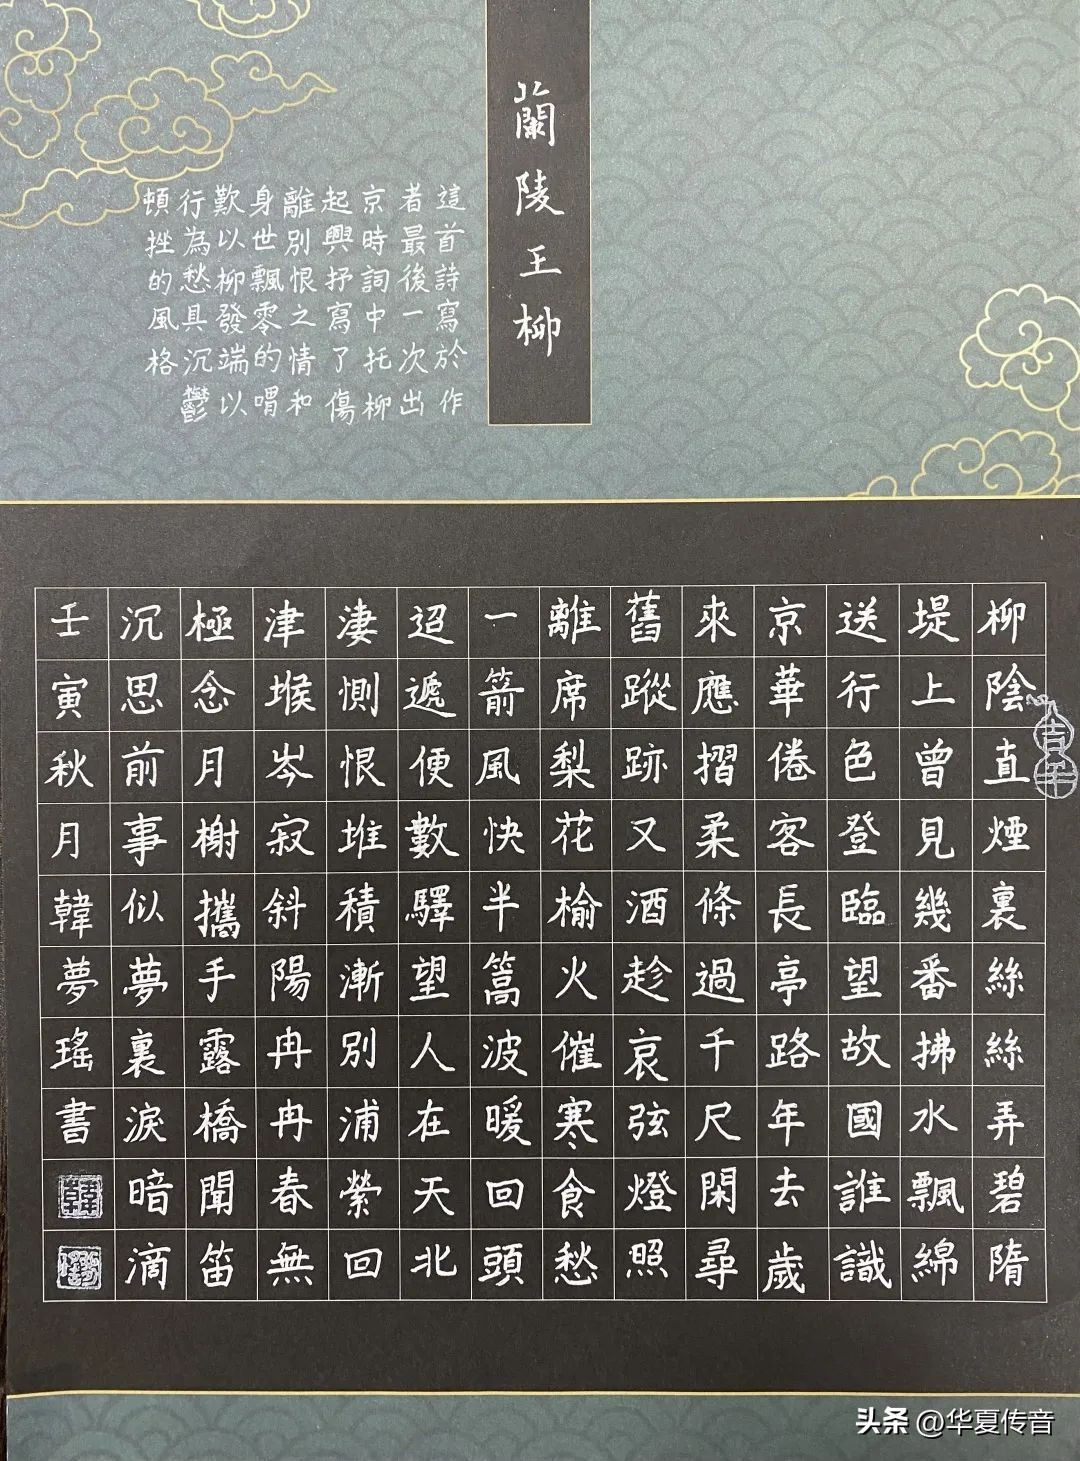 蘭陵王柳
這首詩寫於作
者最後一次出
京時詞中托柳
起興抒寫了傷
離別恨之情和
身世飄零的喟
歎以柳發端以
行為愁具沉鬱
頓挫的風格
柳陰直煙裏絲絲弄碧隋
堤上曾見幾番拂水飄綿
送行色登臨望故國誰識
京華倦客長亭路年去歲
來應摺柔條過千尺閑尋
舊蹤跡又酒趁哀弦燈照
離席梨花榆火催寒食愁
一箭風快半篙波暖回頭
迢遞便數驛望人在天北
淒惻恨堆積漸別浦縈回
津堠岑寂斜陽冉冉春無
極念月榭攜手露橋聞笛
沉思前事似夢裏淚暗滴
壬寅秋月韓夢瑤書
韓
吉羊
头条 @华夏传音